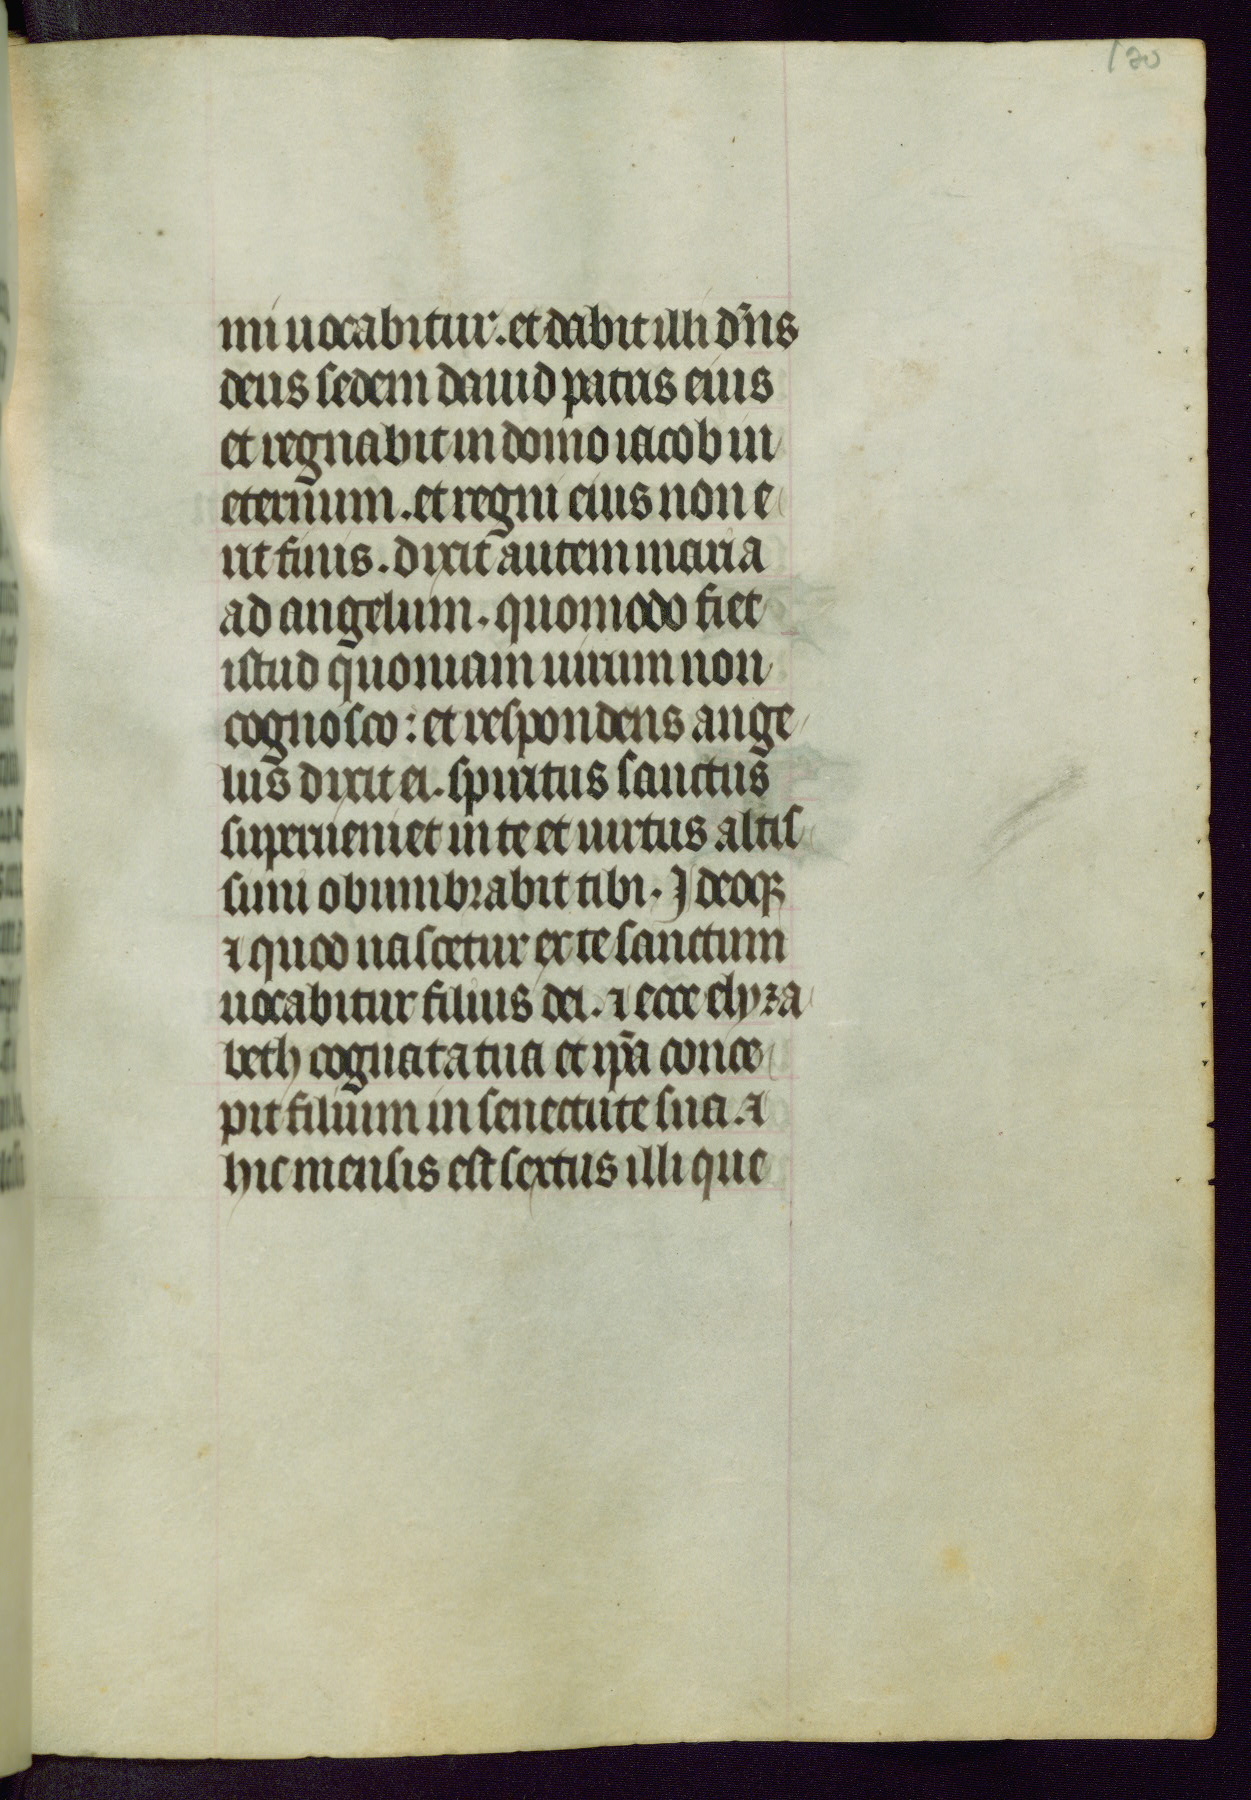 120
mi uocabitur. et dabit illi dn̄s
deus sedem dauid patris eius
et regnabit in domo iacob in
eternum. et regni eius non e
rit finis. dixit autem maria
ad angelum. quomodo fiet
istud quoniam uirum non
cognosco: et respondens ange
lus dixit ei. spiritus sanctus
superueniet in te et uirtus altis
simi obumbrabit tibi. Ideoqꝫ
⁊ quod nascetur ex te sanctum
uocabitur filius dei. ⁊ ecce elyza
beth cognata tua et ip̄a conce
pit filium in senectute sua. ⁊
hic mensis est sextus illi que